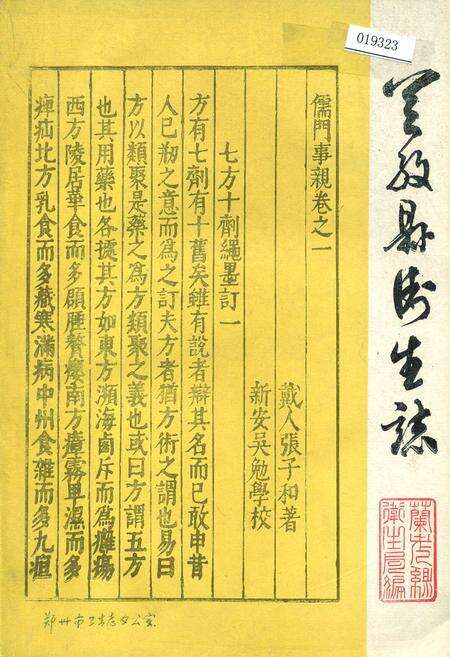 019323
兰攷县卫生誌
蘭考縣
衛生局編
儒門事親卷之一
戴人張子和著
新安吳勉學校
七方十劑繩墨訂一
方有七劑有十舊矣雖有說者辯其名而已敢申昔
人已刱之意而爲之訂夫方者猶方術之謂也易曰
方以類聚是藥之爲方類聚之義也或曰方謂五方
也其用藥也各據其方如東方瀕海鹵斥而爲癰瘍
西方陵居華食而多頤腫贅癭南方瘴霧卑濕而多
痺疝北方乳食而多藏寒滿病中州食雜而多九疸
郑州市卫生志办公室